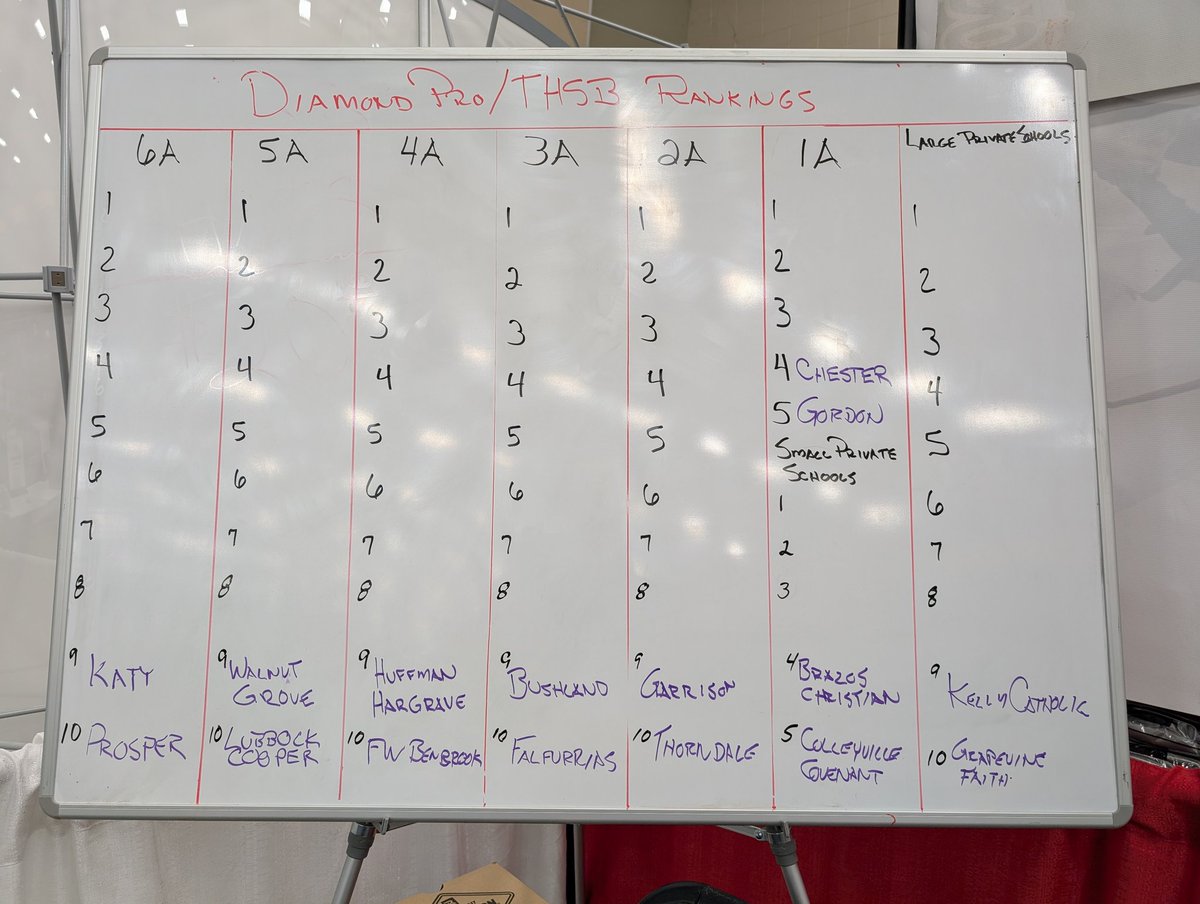 Diamond Pro/THSB Rankings
6A
1
2
3
4
5
6
7
8
9 Katy
10 Prosper
5A
1
2
3
4
5
6
7
8
9 Walnut
Grove
10 Lubbock
Cooper
4A
1
2
3
4
5
6
7
8
9 Huffman
Hargrave
10 FW Benbrook
3A
1
2
3
4
5
6
7
8
9 Bushland
10 Falfurrias
2A
1
2
3
4
5
6
7
8
9 Garrison
10 Thorndale
1A
1
2
3
4 Chester
5 Gordon
Small Private
Schools
1
2
3
4 Brazos
Christian
5 Colleyville
Covenant
Large Private Schools
1
2
3
4
5
6
7
8
9 Kelly Catholic
10 Grapevine
Faith